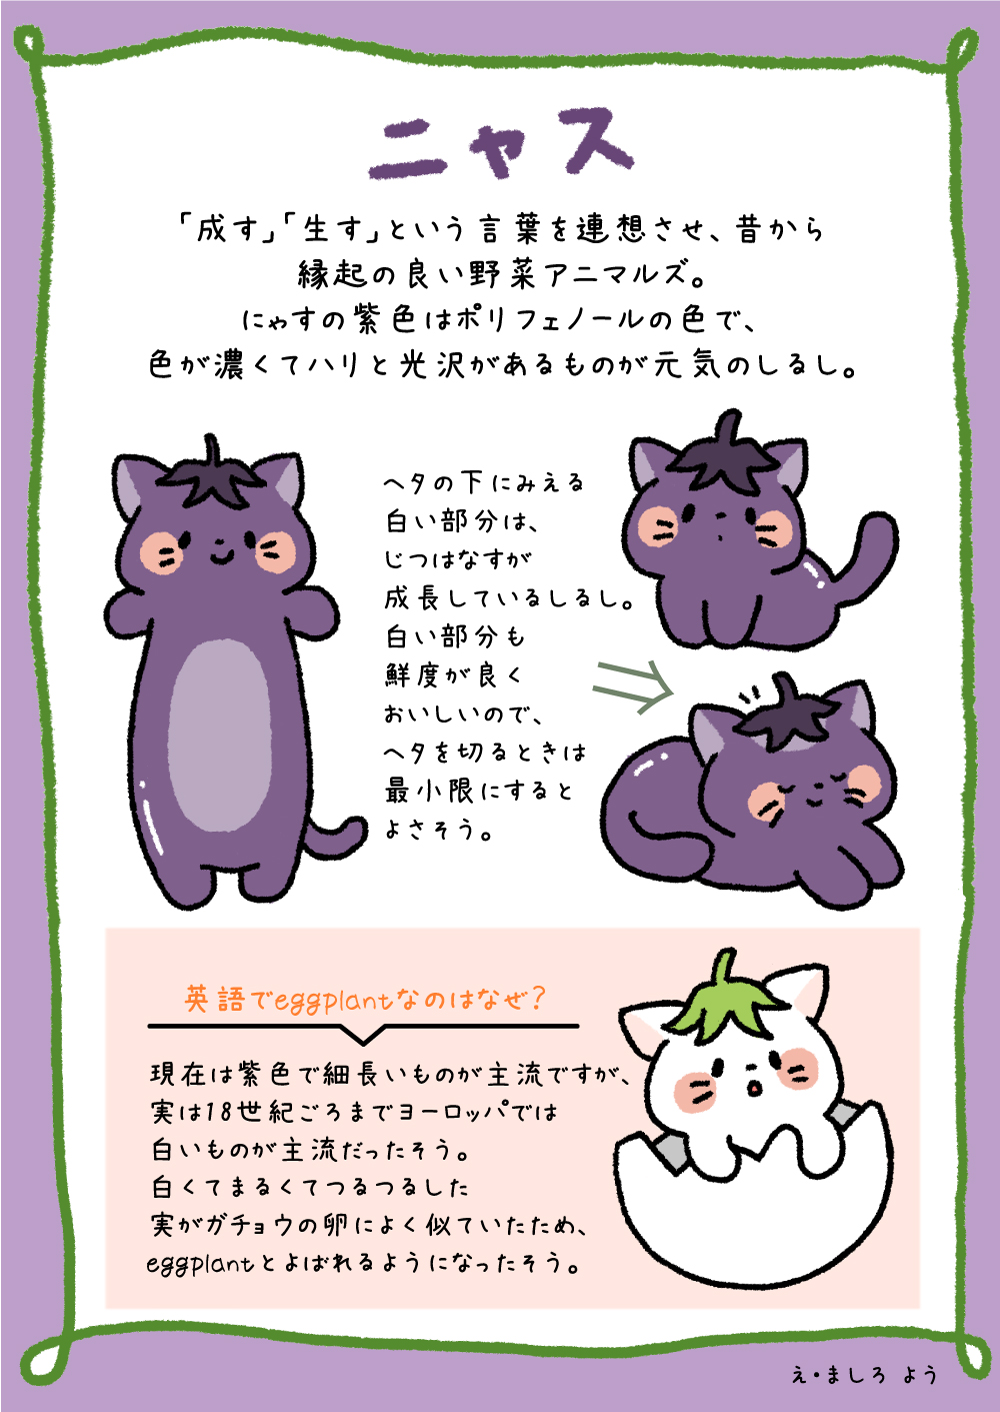 ニャス
「成す」「生す」という言葉を連想させ、昔から
縁起の良い野菜アニマルズ。
にゃすの紫色はポリフェノールの色で、
色が濃くてハリと光沢があるものが元気のしるし。
ヘタの下にみえる
白い部分は、
じつはなすが
成長しているしるし。
白い部分も
鮮度が良く
おいしいので、
ヘタを切るときは
最小限にすると
よさそう。
英語でeggplantなのはなぜ?
現在は紫色で細長いものが主流ですが、
実は18世紀ごろまでヨーロッパでは
白いものが主流だったそう。
白くてまるくてつるつるした
実がガチョウの卵によく似ていたため、
eggplantとよばれるようになったそう。
え・ましろ よう